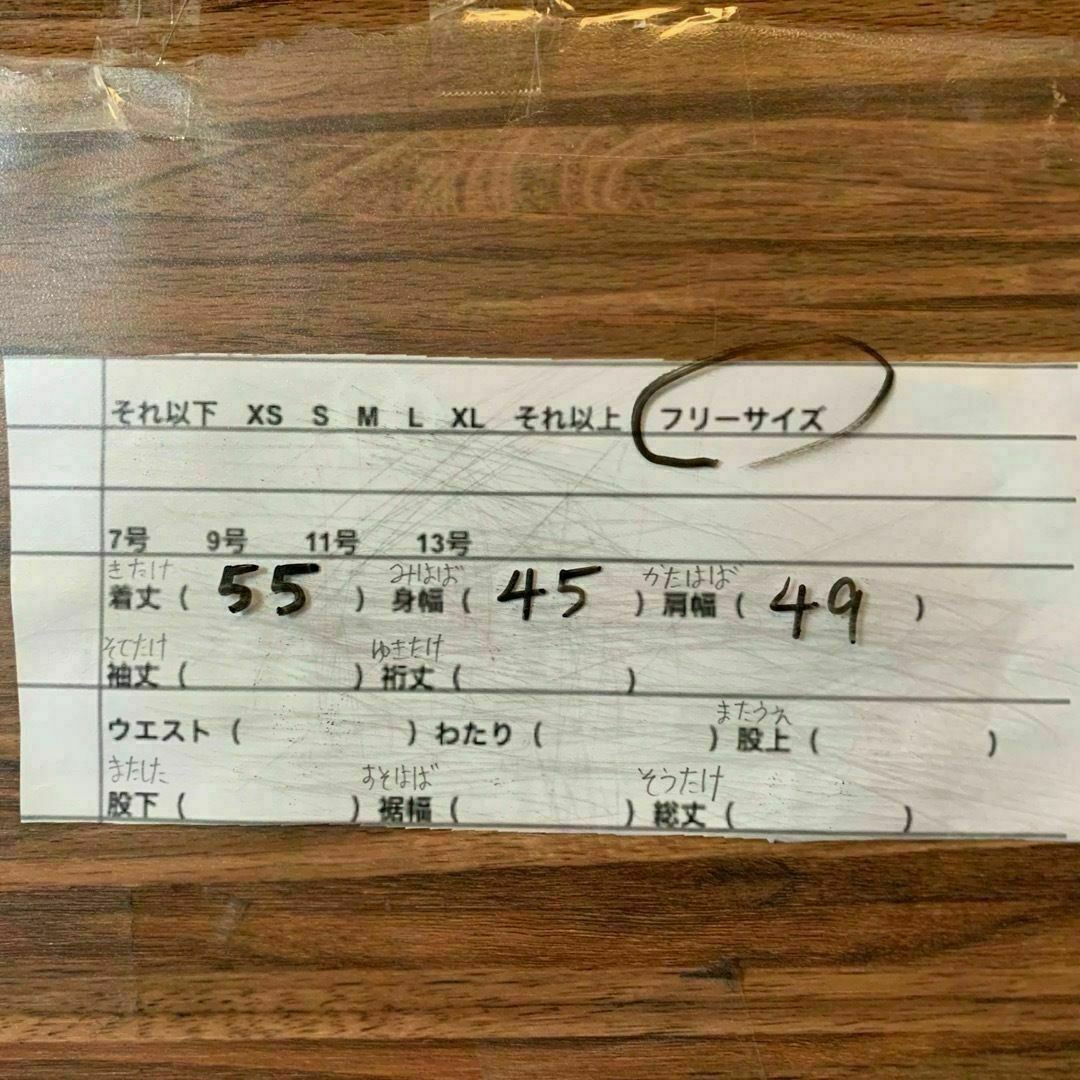 それ以下 XS S M L XL それ以上 フリーサイズ
7号 9号 11号 13号
きたけ みはば かたはば
着丈 ( 55 ) 身幅 ( 45 ) 肩幅 ( 49 )
そでたけ ゆきたけ
袖丈 ( ) 裄丈 ( )
またうえ
ウエスト ( ) わたり ( ) 股上 ( )
またした すそはば そうたけ
股下 ( ) 裾幅 ( ) 総丈 ( )